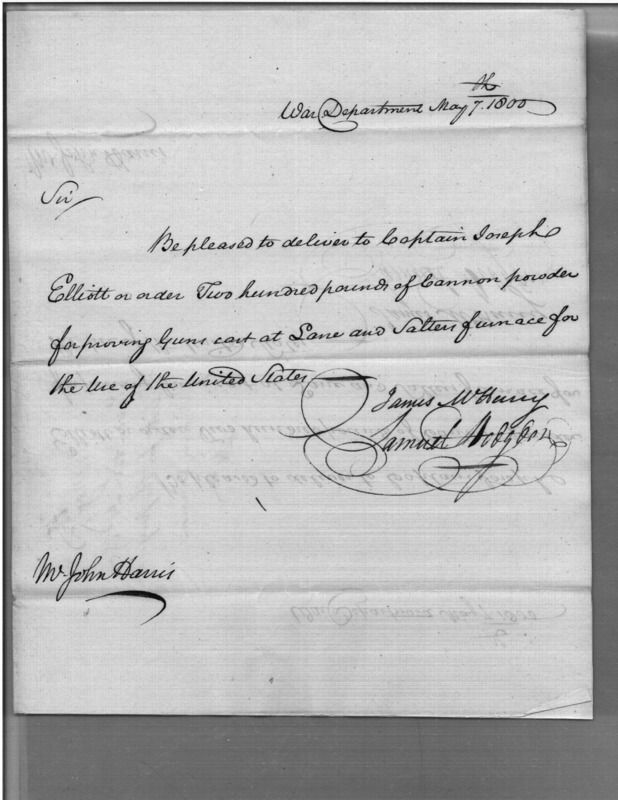 War Department May 7.th 1800
Sir
Be pleased to deliver to Captain Joseph
Elliott or order Two hundred pounds of Cannon powder
for proving Guns cast at Lane and Salters furnace for
the Use of the United States
James McHenry
Samuel Hodgdon
Mr. John Harris